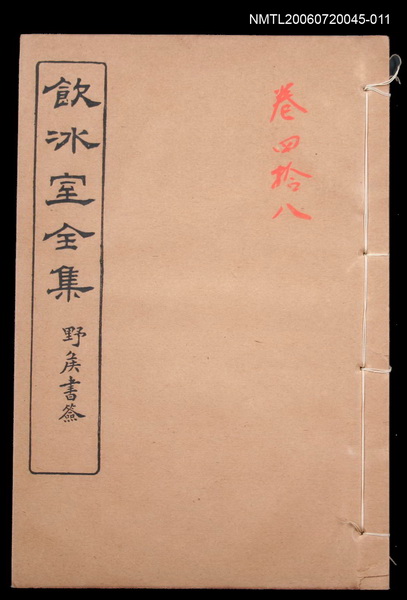 NMTL20060720045-011
卷四拾八
飲冰室全集
野矦書簽